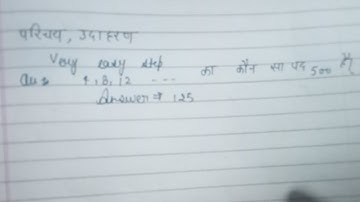 परिचय, उदाहरण
Very easy step
Ques 4, 8, 12 --- का कौन सा पद 500 है
Answer ⇒ 125